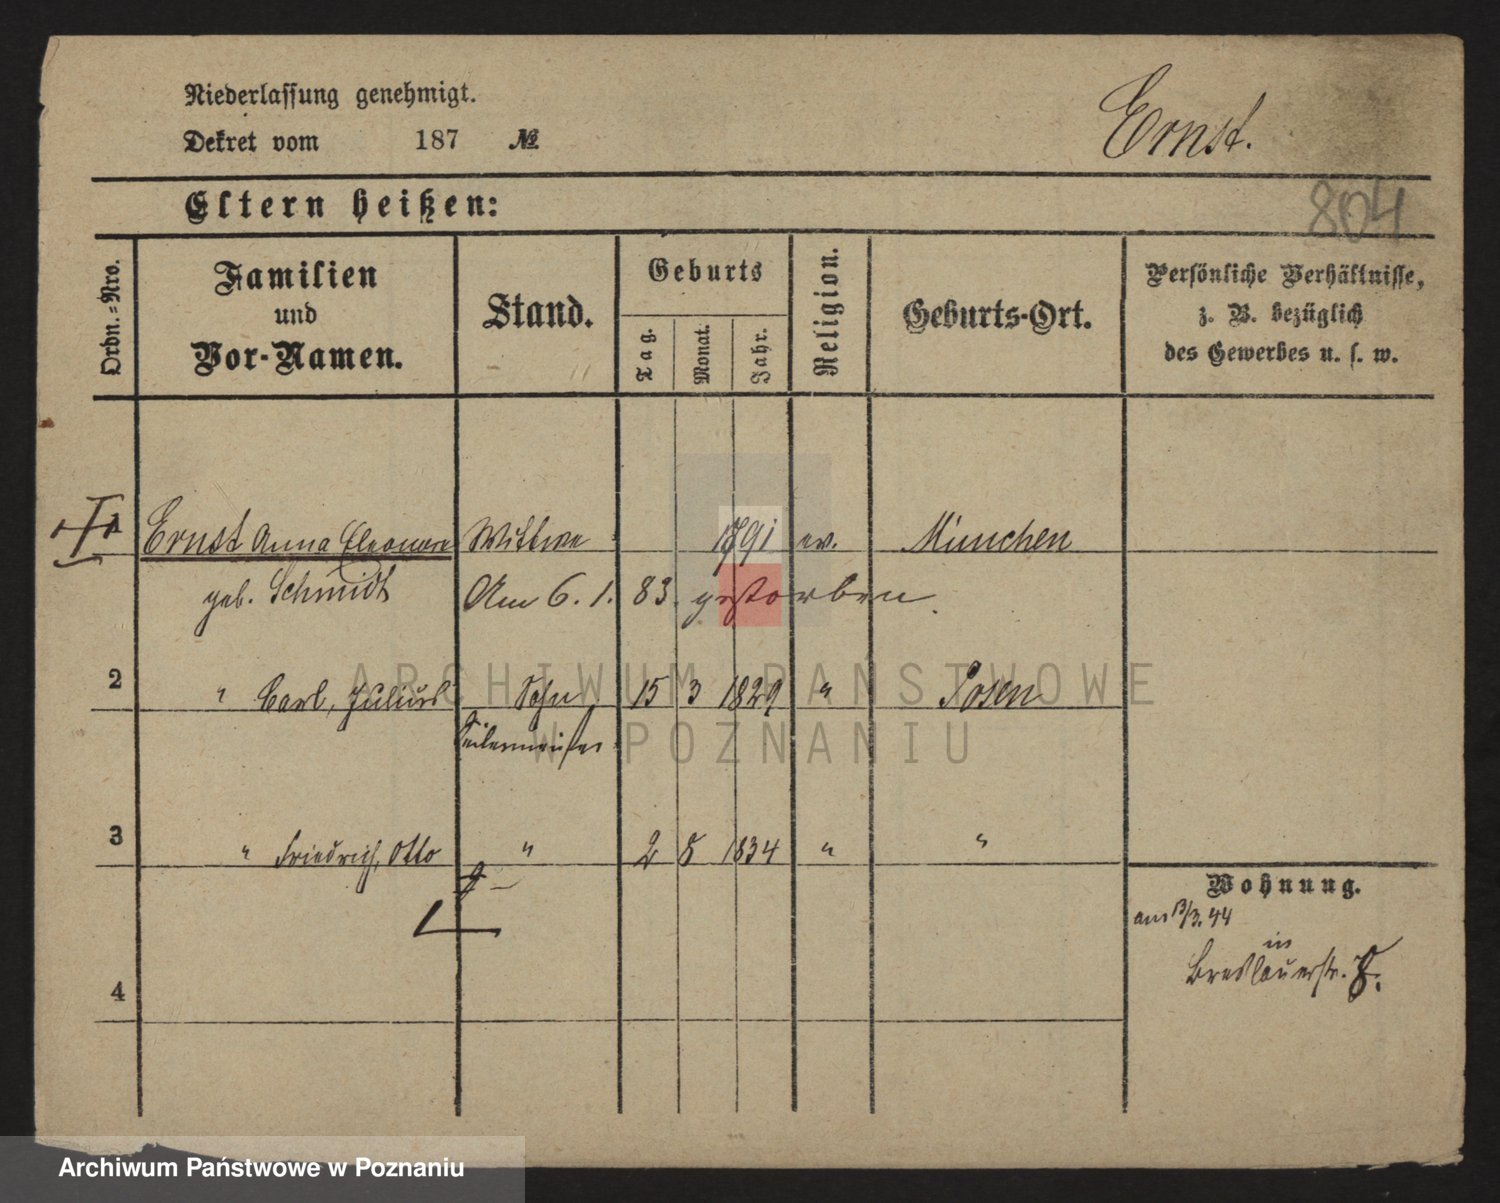 Niederlassung genehmigt.
Dekret vom 187 №
Ernst.
804
Eltern heißen:
Ordn.-Nro.
Familien
und
Vor-Namen.
Stand.
Geburts
Tag.
Monat.
Jahr.
Religion.
Geburts-Ort.
Persönliche Verhältnisse,
z. B. bezüglich
des Gewerbes u. s. w.
1 Ernst Anna Eleonore Wittwe 1791 ev. München
geb. Schmidt Am 6. 1. 83. gestorben.
2 " Carl, Julius Sohn 15 3 1829 " Posen
Seilermeister
3 " Friedrich, Otto " 2 5 1834 " "
4
Wohnung.
am 13/3. 44
in
Breslauerstr. 8.
ARCHIWUM PAŃSTWOWE
W POZNANIU
Archiwum Państwowe w Poznaniu